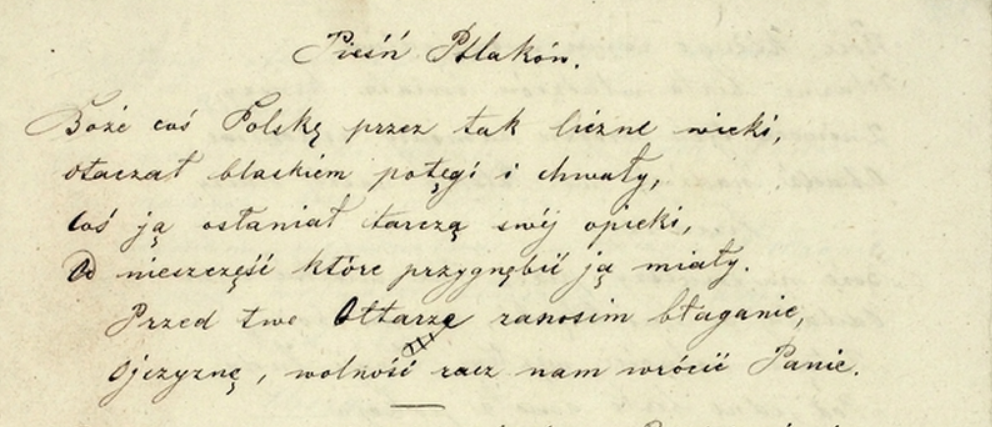 Pieśń Polaków.
Boże coś Polskę przez tak liczne wieki,
otaczał blaskiem potęgi i chwały,
Coś ją osłaniał tarczą swéj opieki,
Od nieszczęść które przygnębić ją miały.
Przed twe Ołtarze zanosim błaganie,
Ojczyznę, wolność racz nam wrócić Panie.